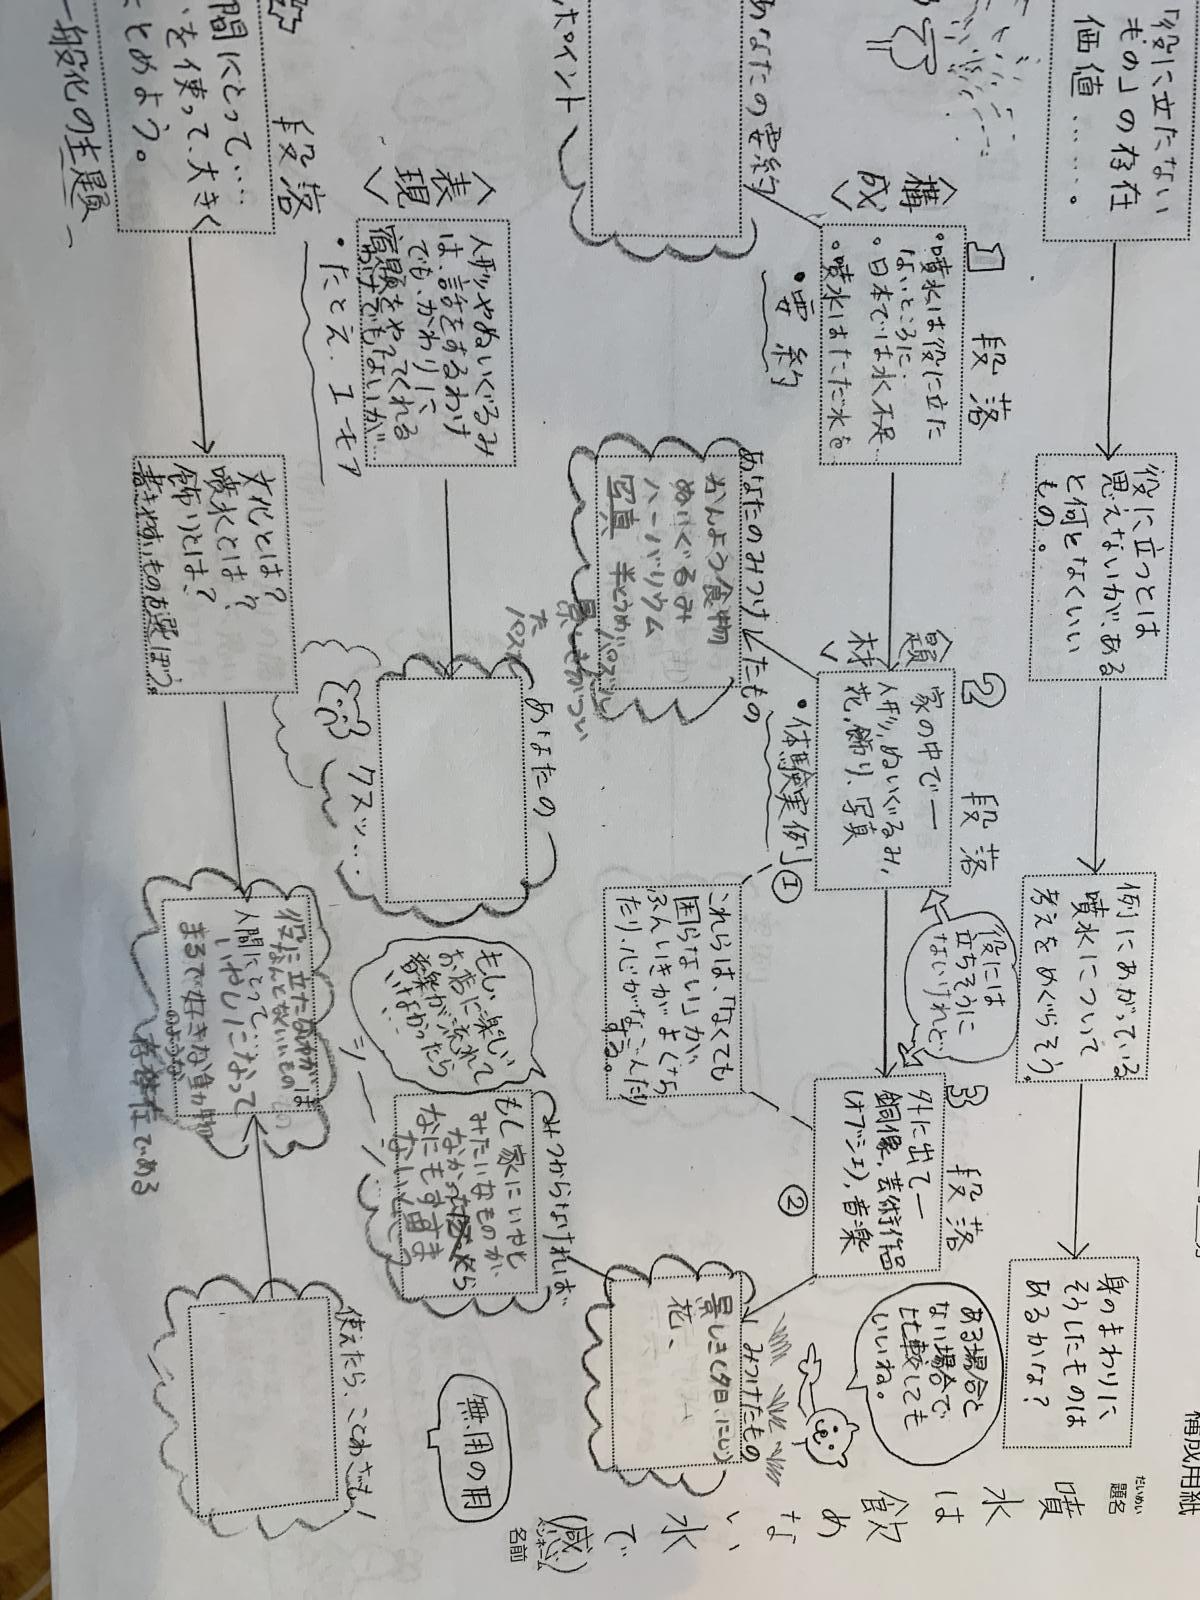 構成用紙
だいめい
題名
噴水は飲めない水で(感)
ペンネーム
名前
「役に立たない
もの」の存在
価値……。
役に立つとは
思えないが、ある
と何となくいい
もの。
例にあがっている
噴水について
考えをめぐらそう。
身のまわりに
そうしたものは
あるかな?
ある場合と
ない場合で
比較しても
いいね。
〈構成〉
1段落
・噴水は役に立た
ないところに…
・日本では水不足…
・噴水はただ水を
・要約
あなたの要約
ポイント
〈題材〉
2段落
家の中で―
人形、ぬいぐるみ、
花、飾り、写真
・体験実例①
役には
立ちそうに
ないけれど…
3段落
外に出て―
銅像、芸術作品
(オブジェ)、音楽
②
あなたのみつけたもの
かんよう食物
ぬいぐるみ
ハーバリウム
写真
景しきがつい
たパズル
これらは、「なくても
困らない」が、
ふんいきがよくなっ
たり、心がなごんだり
する。
みつけたもの
景しき(夕日、にじ)
花、
みつからなければ
もし家にいやし
みたいなものが、
なかったら
ないとき
もし、
お店に楽しい
音楽が流れて
いなかったら
…
シーーン
無用の用
〈表現〉
人形やぬいぐるみ
は、話をするわけ
でも、かわりに
宿題をやってくれる
わけでもないが…
・たとえ・ユーモア
あなたの
クスッ…
段落
間にとって…
を使って、大きく
とめよう。
一般化の主題
文化とは?
噴水とは?
飾りとは?
書きやすいものを選ぼう。
人間にとって、
いやしになって
まるで好きな動物
のような
存在である
使えたら、ことわざも!